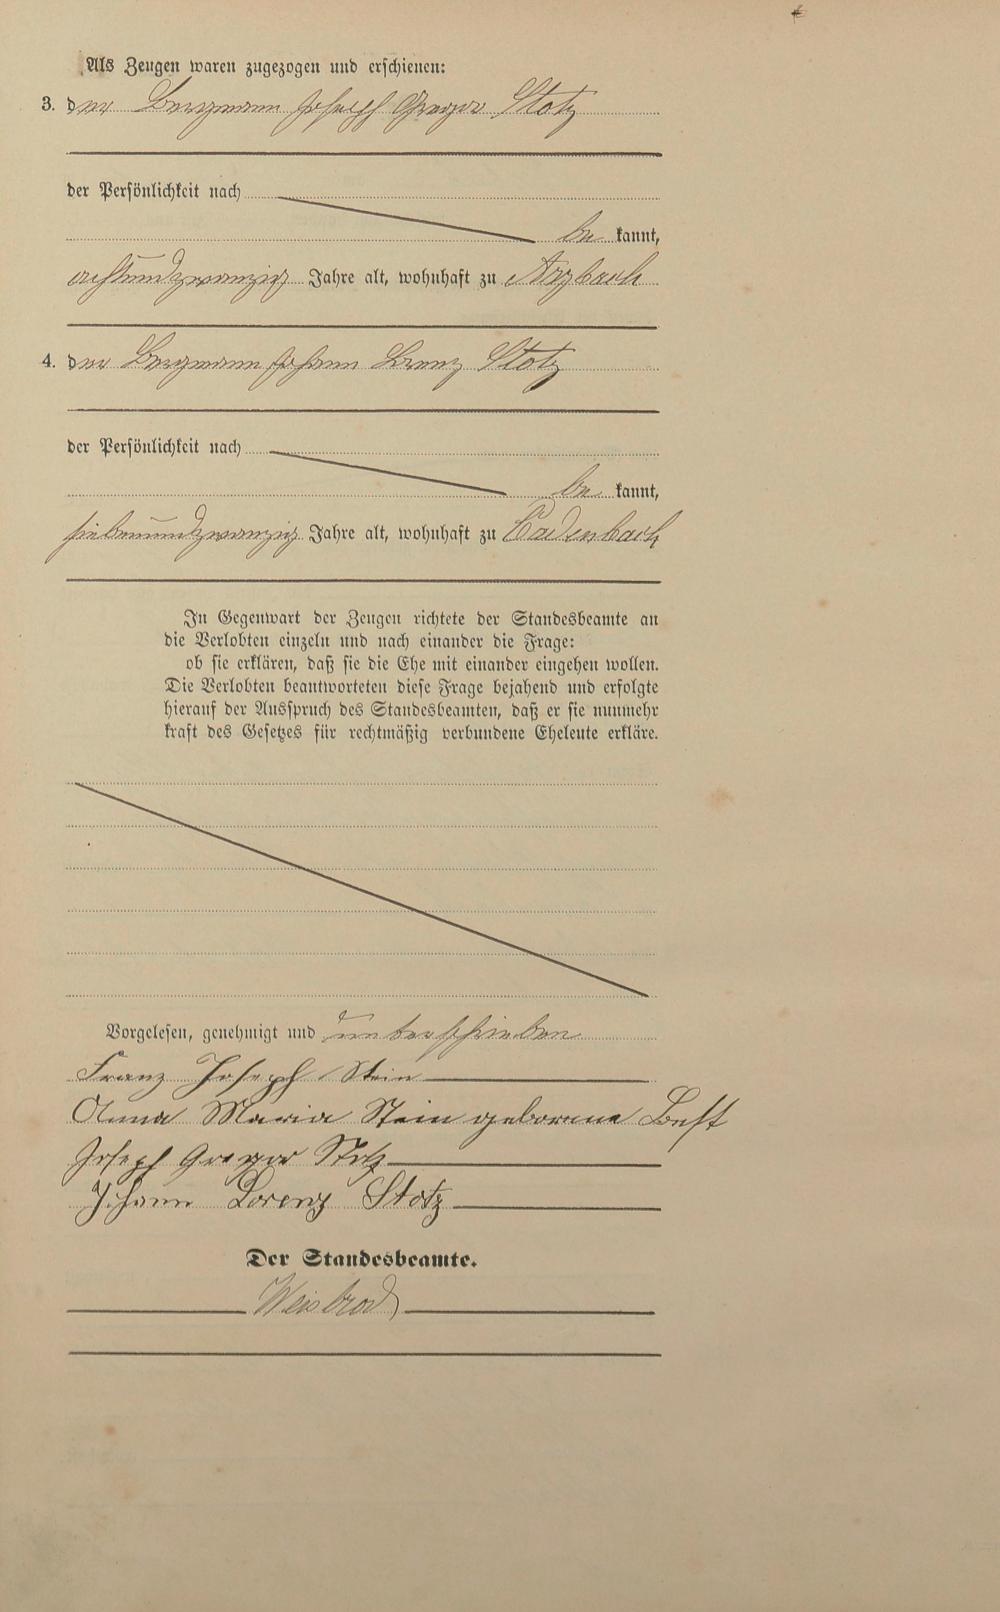 Als Zeugen waren zugezogen und erschienen:
3. der Bergmann Joseph Gregor Stotz
der Persönlichkeit nach
be kannt,
achtundzwanzig Jahre alt, wohnhaft zu Arzbach
4. der Bergmann Johann Lorenz Stotz
der Persönlichkeit nach
be kannt,
siebenundzwanzig Jahre alt, wohnhaft zu Cadenbach
In Gegenwart der Zeugen richtete der Standesbeamte an
die Verlobten einzeln und nach einander die Frage:
ob sie erklären, daß sie die Ehe mit einander eingehen wollen.
Die Verlobten beantworteten diese Frage bejahend und erfolgte
hierauf der Ausspruch des Standesbeamten, daß er sie nunmehr
kraft des Gesetzes für rechtmäßig verbundene Eheleute erkläre.
Vorgelesen, genehmigt und unterschrieben
Franz Joseph Stein
Anna Maria Stein geborene Best
Joseph Gregor Stotz
Johann Lorenz Stotz
Der Standesbeamte.
Weisbrod